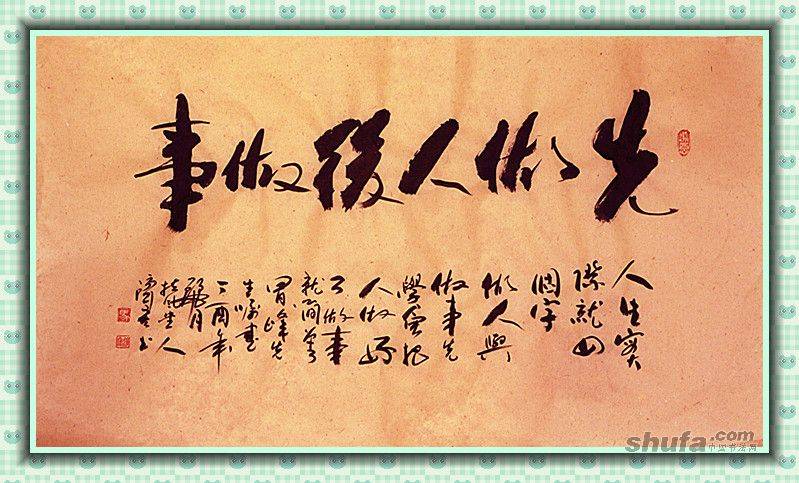 先做人後做事
人生實
際就四
個字
做人與
做事先
學會把
人做好
了做事
就簡單
先
生嘱書
酉年
月
人
shufa.com
中国书法网